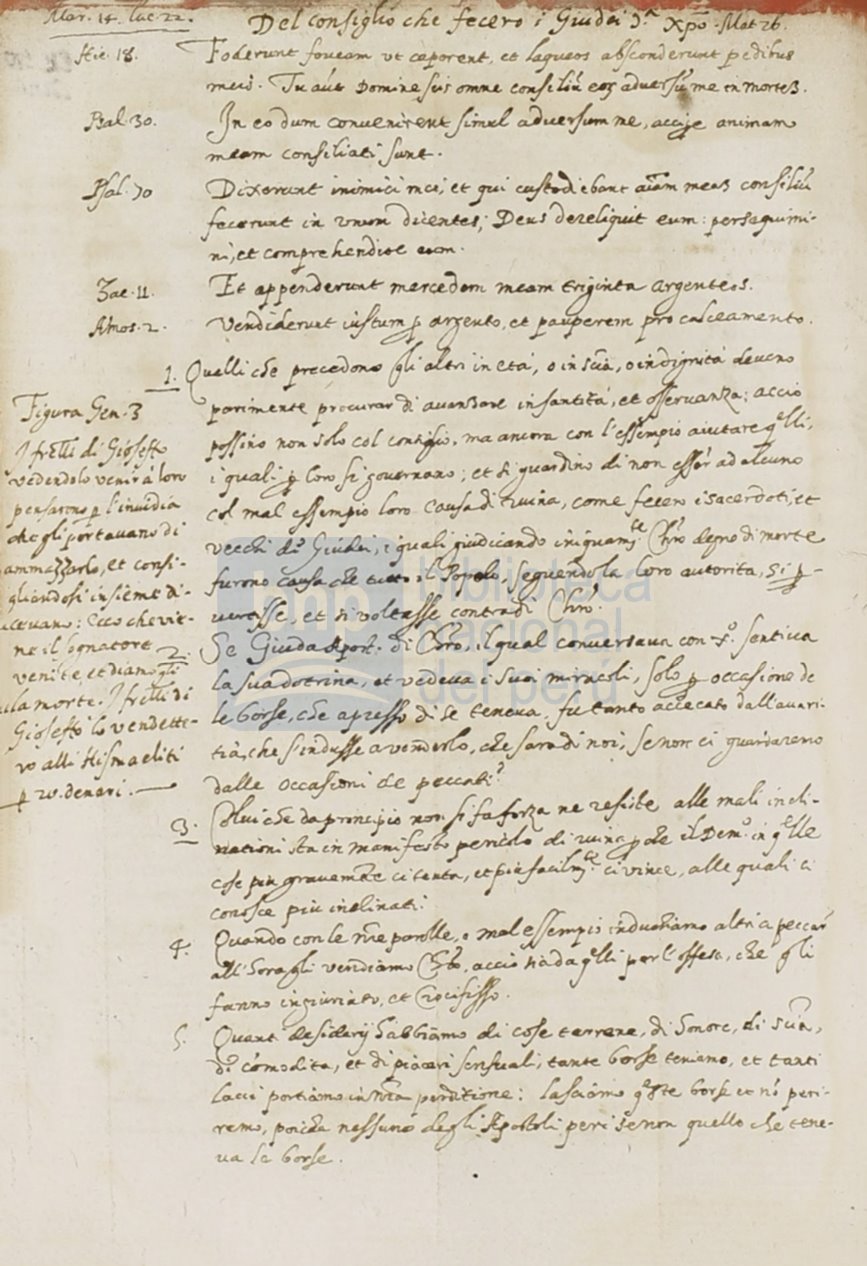 Mar. 14. Luc. 22.
Del consiglio che fecero i Giudei 3.ª Xpō. Mat 26.
Hie. 18.
Foderunt foveam ut caperent, et laqueos absconderunt pedibus
meis. Tu aūt Domine scis omne consiliū eoȝ adversū me in morteȝ.
Psal. 30.
In eo dum convenirent simul adversum me, accipe animam
meam consiliati sunt.
Psal. 70
Dixerunt inimici mei, et qui custodiebant aīam meaȝ consiliū
fecerunt in unum dicentes; Deus dereliquit eum: persequimi-
ni, et comprehendite eum.
Zac. 11.
Et appenderunt mercedem meam triginta argenteos.
Amos. 2.
Vendiderunt iustum p argento, et pauperem pro calceamento.
1. Quelli che precedono gli altri in età, o in sciā, o in dignità deveno
parimente procurar di avanzare in santità, et osservanza; acciò
possino non solo col consiglio, ma ancora con l'essempio aiutare q̄lli,
i quali p loro si governano; et si guardino di non esser ad alcuno
col mal essempio loro causa di ruina, come fecero i sacerdoti, et
vecchi dē Giudei, i quali giudicando iniquam.te Chrō degno di morte
furono causa che tutto il Popolo, seguendo la loro autorita, si p-
vertesse, et si voltasse contra di Chrō.
Figura Gen. 3
I frēlli di Gioseffo
vedendolo venir à loro
pensarono p l'invidia
che gli portavano di
ammazzarlo, et consi-
gliandosi insieme di-
cevano: Ecco che vie-
ne il sognatore
venite, et diamogli
la morte. I frēlli di
Gioseffo lo vendette-
ro alli Hismaeliti
p xx. denari.
2. Se Giuda Apost. di Chrō, il qual conversava con s.º sentiva
la sua dotrina, et vedeva i suoi miracoli, solo p occasione de
le borse, che apresso di se teneva, fu tanto accecato dall'avari-
tia, che s'indusse a venderlo, che sara di noi, se non ci guardaremo
dalle occasioni de peccati?
3. Colui che da principio non si fa forza ne resiste alle mali incli-
nationi sta in manifesto pericolo di ruina p che il Dem.º in q̄lle
cose piu gravemēte ci tenta, et piu facilm.te ci vince, alle quali ci
conosce piu inclinati.
4. Quando con le nr̄e parolle, o mal essempio induchiamo altri a peccar
all'hora gli vendiamo Chrō, acciò sia da q̄lli per l'offesa, che gli
fanno ingiuriato, et Crocifisso.
5. Quanti desiderij habbiamo di cose terrene, di honore, di sciā,
dī cōmodita, et di piaceri sensuali, tante borse teniamo, et tanti
lacci portiamo in nr̄a perditione: lasciamo q̄ste borse et nō peri-
remo, poiche nessuno degli Apostoli peri se non quello che tene-
va le borse.
bnp
biblioteca
nacional
del perú